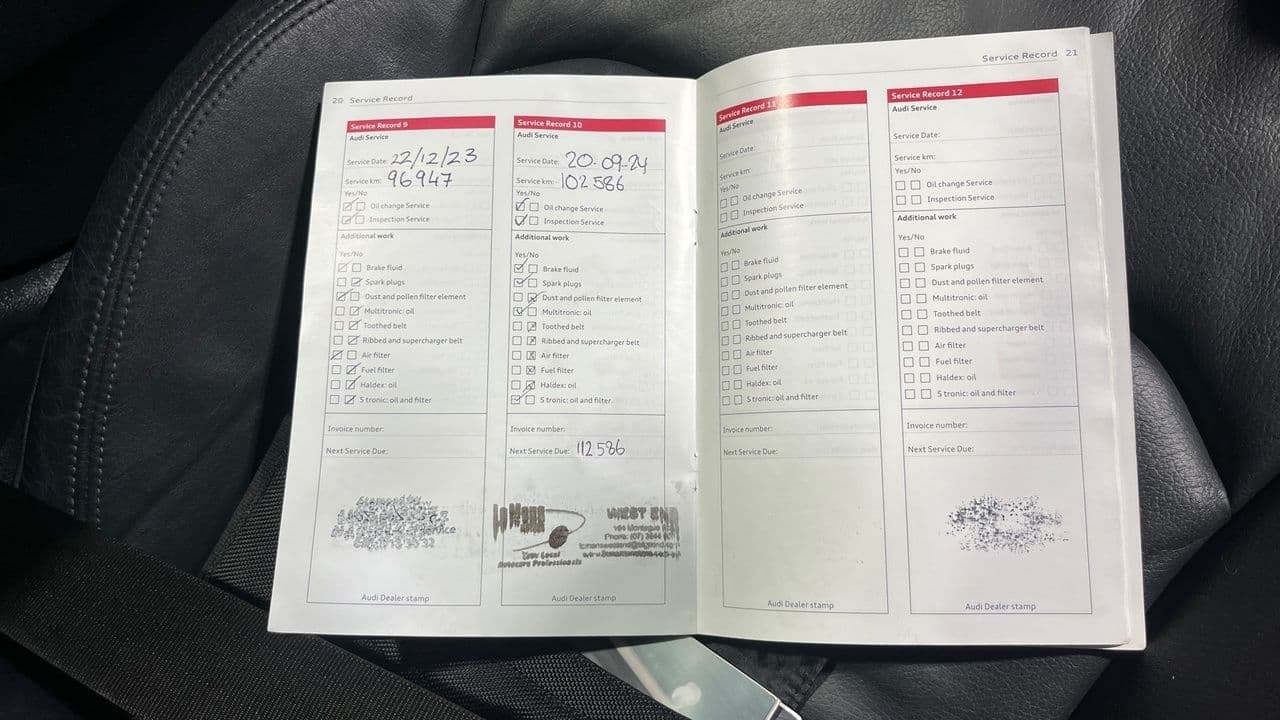 20 Service Record
Service Record 9
Audi Service
Service Date: 22/12/23
Service km: 96947
Yes/No
Oil change Service
Inspection Service
Additional work
Yes/No
Brake fluid
Spark plugs
Dust and pollen filter element
Multitronic: oil
Toothed belt
Ribbed and supercharger belt
Air filter
Fuel filter
Haldex: oil
S tronic: oil and filter
Invoice number:
Next Service Due:
Audi Dealer stamp
Service Record 10
Audi Service
Service Date: 20-09-24
Service km: 102586
Yes/No
Oil change Service
Inspection Service
Additional work
Yes/No
Brake fluid
Spark plugs
Dust and pollen filter element
Multitronic: oil
Toothed belt
Ribbed and supercharger belt
Air filter
Fuel filter
Haldex: oil
S tronic: oil and filter
Invoice number:
Next Service Due: 112586
WEST END
Phone: (07)
Your Local
Autocare Professionals
Audi Dealer stamp
Service Record 21
Service Record 11
Audi Service
Service Date:
Service km:
Yes/No
Oil change Service
Inspection Service
Additional work
Yes/No
Brake fluid
Spark plugs
Dust and pollen filter element
Multitronic: oil
Toothed belt
Ribbed and supercharger belt
Air filter
Fuel filter
Haldex: oil
S tronic: oil and filter
Invoice number:
Next Service Due:
Audi Dealer stamp
Service Record 12
Audi Service
Service Date:
Service km:
Yes/No
Oil change Service
Inspection Service
Additional work
Yes/No
Brake fluid
Spark plugs
Dust and pollen filter element
Multitronic: oil
Toothed belt
Ribbed and supercharger belt
Air filter
Fuel filter
Haldex: oil
S tronic: oil and filter
Invoice number:
Next Service Due:
Audi Dealer stamp